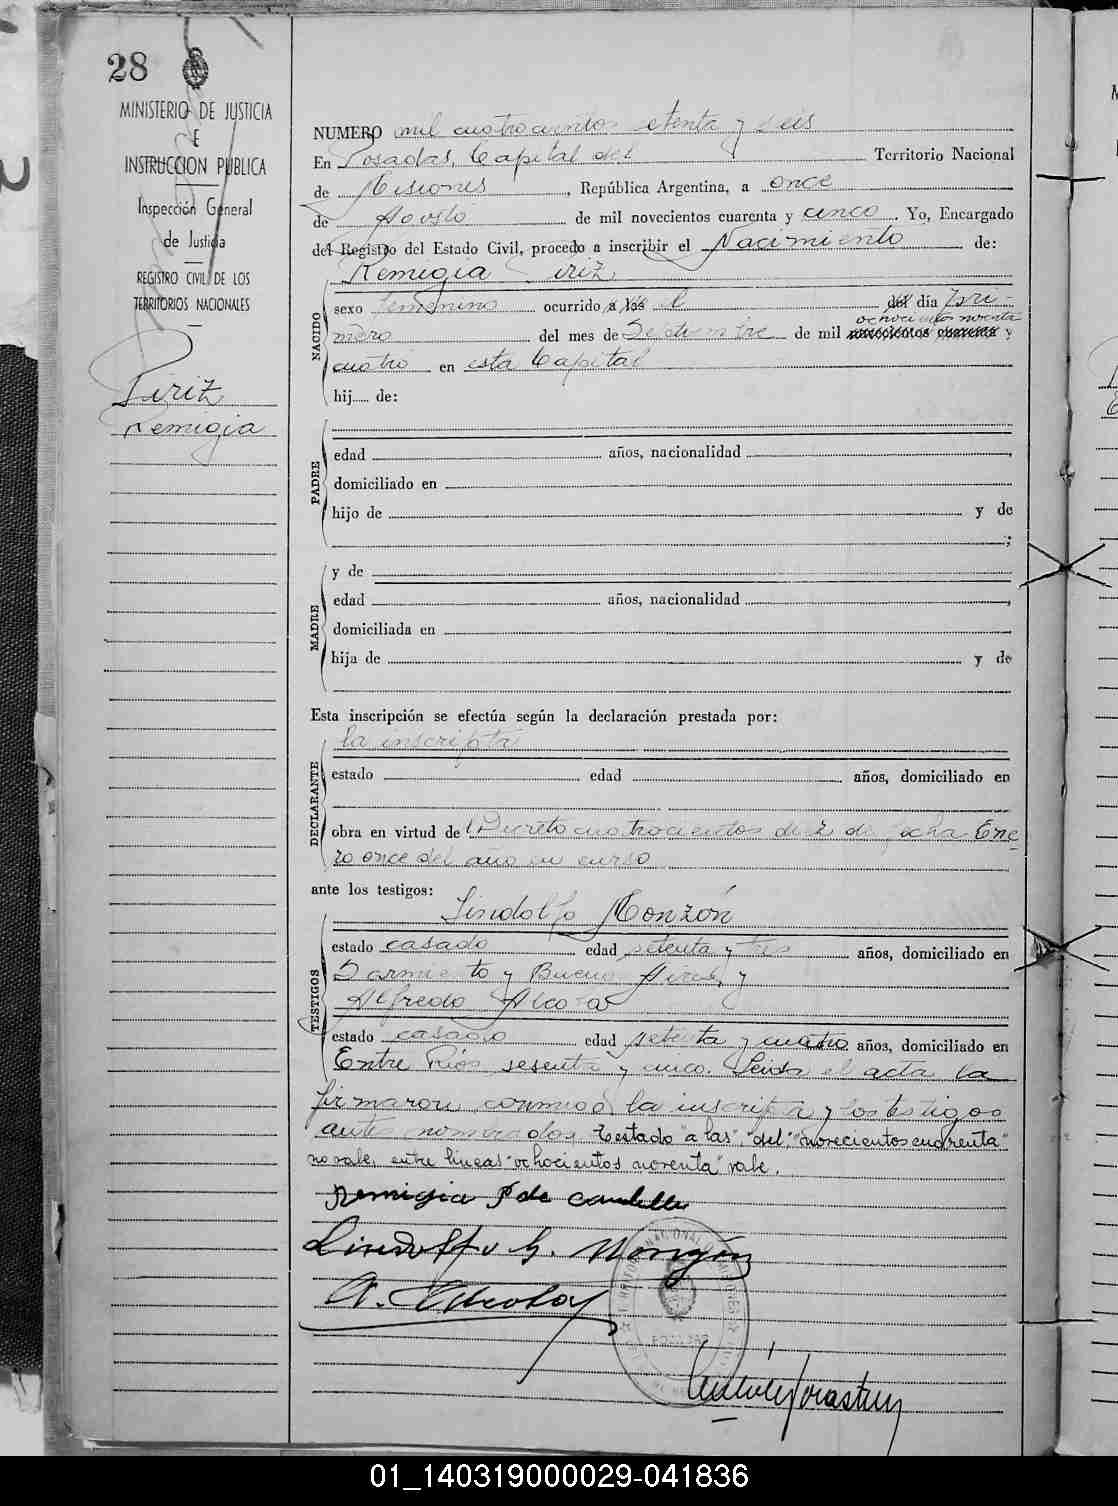 28
MINISTERIO DE JUSTICIA
E
INSTRUCCION PUBLICA
Inspección General
de Justicia
REGISTRO CIVIL DE LOS
TERRITORIOS NACIONALES
Piriz
Remigia
NUMERO mil cuatrocientos setenta y seis
En Posadas, Capital del Territorio Nacional
de Misiones, República Argentina, a once
de Agosto de mil novecientos cuarenta y cinco. Yo, Encargado
del Registro del Estado Civil, procedo a inscribir el Nacimiento de:
Remigia Piriz
NACIDO
sexo femenino ocurrido a las el del día Pri-
ochocientos noventa
mero del mes de Setiembre de mil novecientos cuarenta y
cuatro en esta Capital
hij..... de:
PADRE
edad años, nacionalidad
domiciliado en
hijo de y de
;
MADRE
y de
edad años, nacionalidad
domiciliada en
hija de y de
Esta inscripción se efectúa según la declaración prestada por:
la inscripta
DECLARANTE
estado edad años, domiciliado en
obra en virtud del Decreto cuatrocientos diez de fecha Ene-
ro once del año en curso
ante los testigos:
Lindolfo Monzón
TESTIGOS
estado casado edad setenta y tres años, domiciliado en
Sarmiento y Buenos Aires, y
Alfredo Alcota
estado casado edad setenta y cuatro años, domiciliado en
Entre Rios sesenta y cinco. Leida el acta la
firmaron conmigo la inscripta y los testigos
antes nombrados. Testado "a las", "del", "novecientos cuarenta"
no vale, entre lineas "ochocientos noventa" vale.
Remigia P de
Lindolfo G. Monzón
01_140319000029-041836